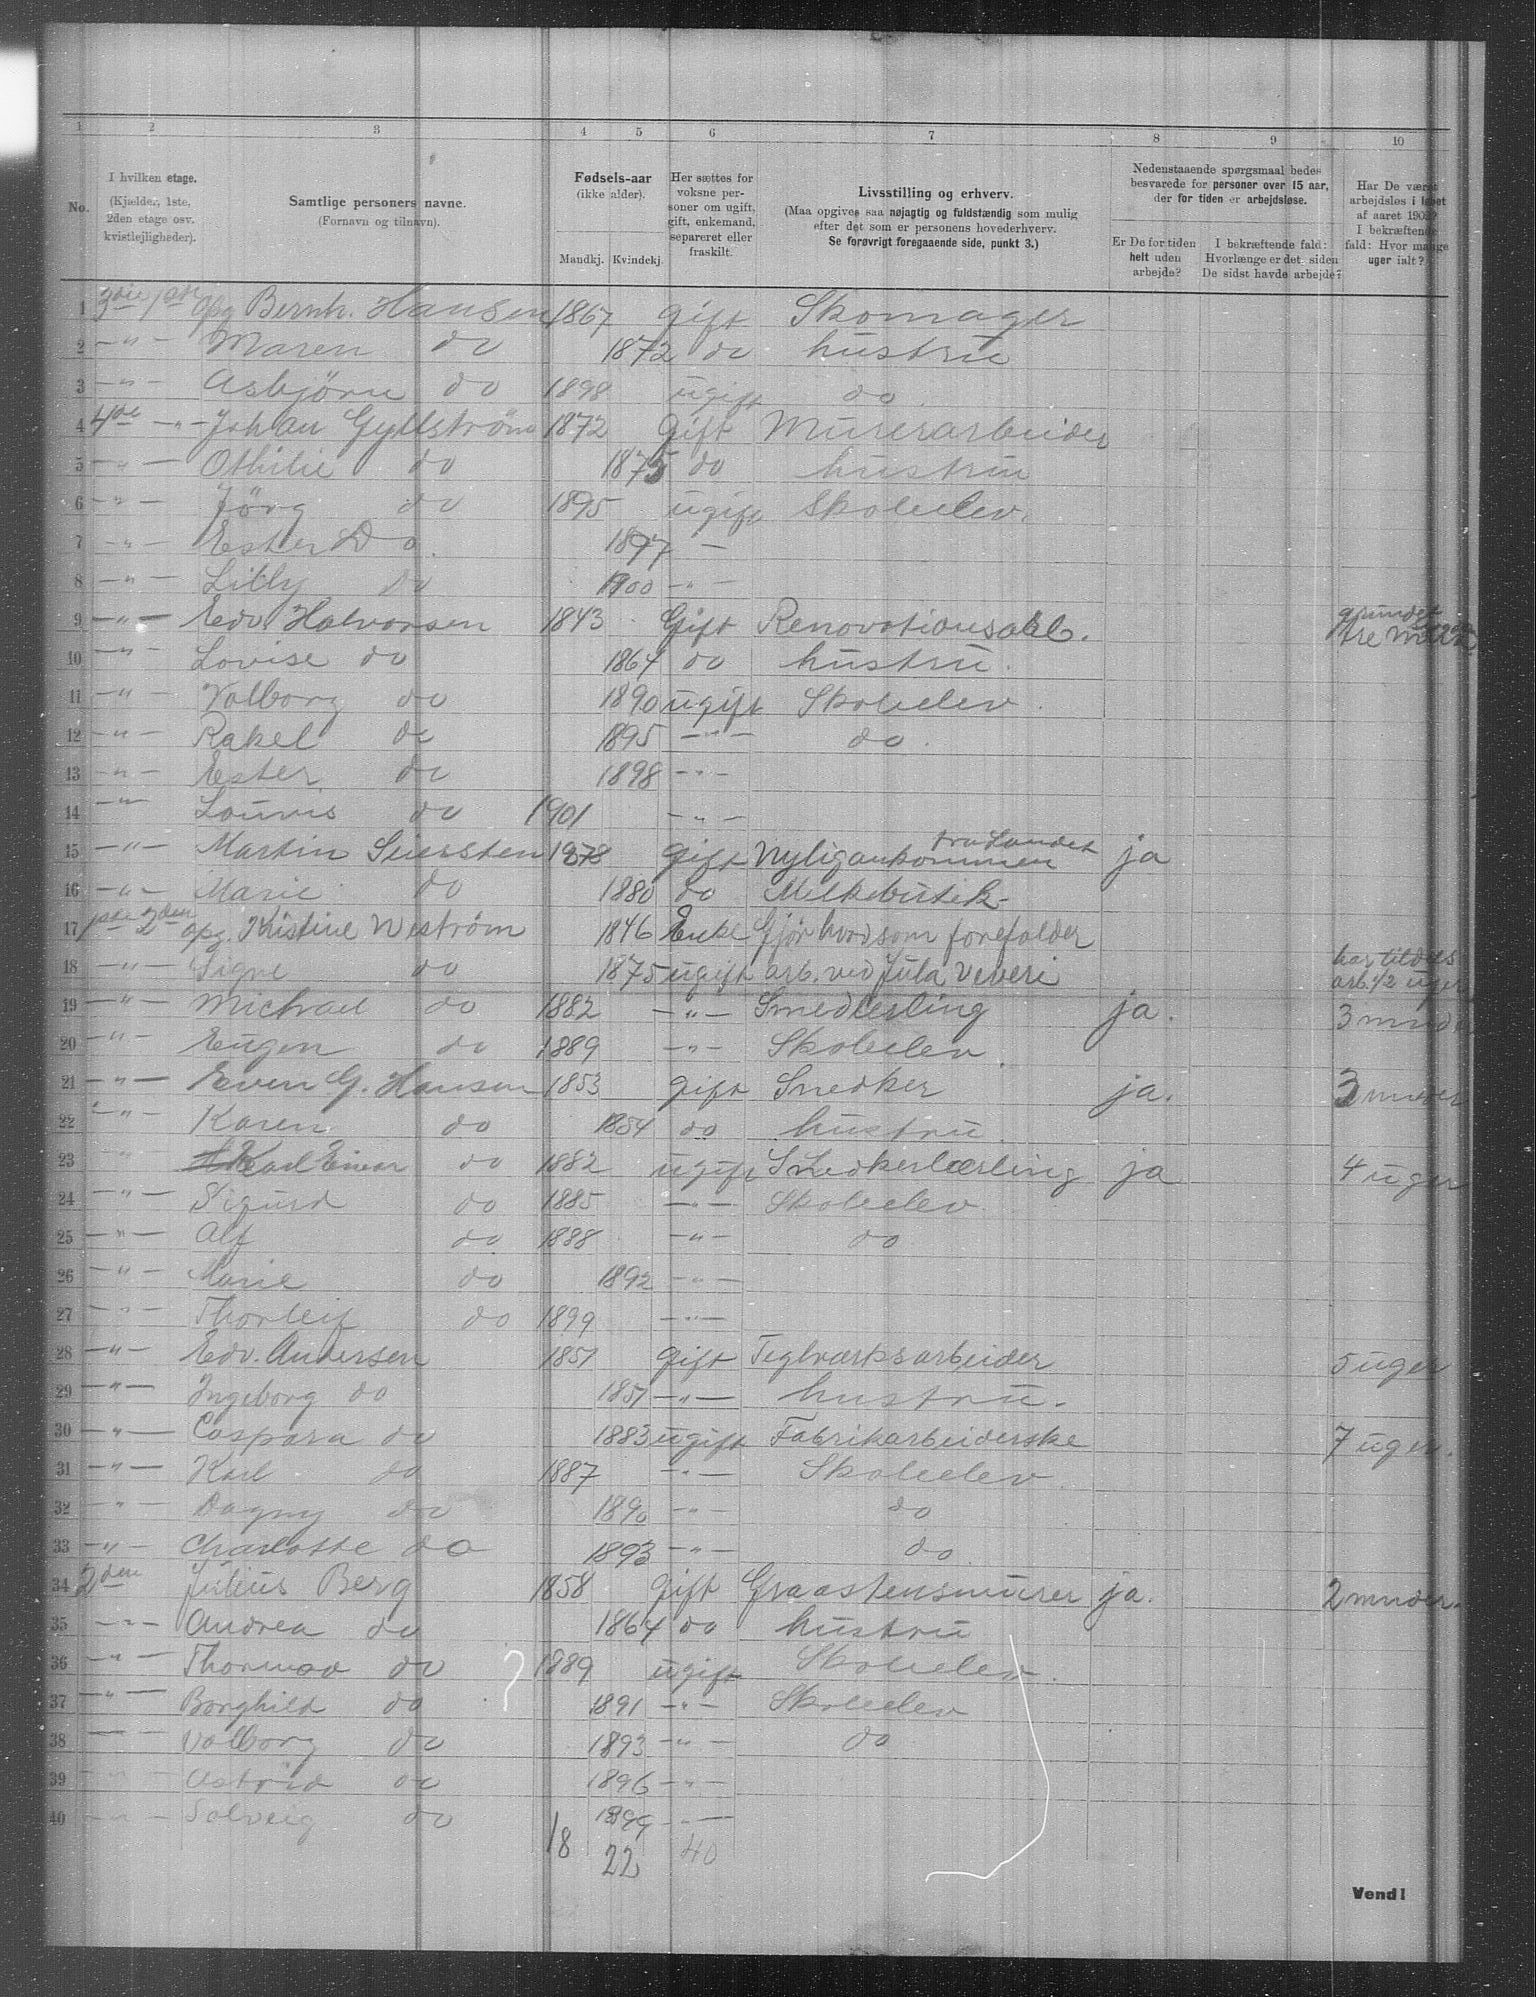 1 2 3 4 5 6 7 8 9 10
No.
I hvilken etage.
(Kjælder, 1ste, 2den etage osv. kvistlejligheder).
Samtlige personers navne.
(Fornavn og tilnavn).
Fødsels-aar
(ikke alder).
Mandkj. Kvindekj.
Her sættes for voksne personer om ugift, gift, enkemand, separeret eller fraskilt.
Livsstilling og erhverv.
(Maa opgives saa nøjagtig og fuldstændig som mulig efter det som er personens hovederhverv.
Se forøvrigt foregaaende side, punkt 3.)
Nedenstaaende spørgsmaal bedes besvarede for personer over 15 aar, der for tiden er arbejdsløse.
Er De for tiden helt uden arbejde?
I bekræftende fald: Hvorlænge er det siden De sidst havde arbejde?
Har De været arbejdsløs i løbet af aaret 190? I bekræftende fald: Hvor mange uger ialt?
1 3die 1ste opg Bernh. Hansen 1867 gift Skomager
2 -"- Maren do 1872 do hustru
3 -"- Asbjörn do 1898 ugift do
4 4de -"- Johan Gyllström 1872 gift Murerarbeider
5 -"- Othilie do 1875 do hustru
6 -"- Jörg do 1895 ugift Skoleelev.
7 -"- Ester Do. 1897 -
8 -"- Lilly do 1900 -"-
9 -"- Edv. Halvorsen 1843 Gift Renovationsarb. grundet
10 -"- Lovise do 1864 do hustru.
11 -"- Valborg do 1890 ugift Skoleelev.
12 -"- Rakel do 1895 -"- do.
13 -"- Ester do 1898 -"-
14 -"- Louvis do 1901 -"-
15 -"- Martin Siersten 1878 gift Nyligankommen fra Landet ja
16 -"- Marie do 1880 do Melkebutik
17 1ste 2den opg. Kristine Weström 1846 Enke Gjör hvad som forefalder
18 -"- Signe do 1875 ugift arb. ved Jula Veveri har tildels arb. 1/2 uger
19 -"- Michael do 1882 -"- Smedlerling ja. 3 mnder
20 -"- Eugen do 1889 -"- Skoleelev.
21 -"- Even G. Hansen 1853 gift Snedker ja. 3 mnder
22 -"- Karen do 1854 do hustru.
23 -"- Karl Einar do 1882 ugift Snedkerlærling ja 4 uger
24 -"- Sigurd do 1885 -"- Skoleelev.
25 -"- Alf do 1888 -"- do
26 -"- Marie do 1892 -"-
27 -"- Thorleif do 1899 -"-
28 -"- Edv. Andersen 1851 gift Teglværksarbeider 5 uger
29 -"- Ingeborg do 1851 -"- hustru.
30 -"- Caspara do 1883 ugift Fabrikarbeiderske 7 uger.
31 -"- Karl do 1887 -"- Skoleelev
32 -"- Dagny do 1890 -"- do
33 -"- Charlotte do 1893 -"- do
34 2den Julius Berg 1858 gift Graastensmurer ja. 2 mnder.
35 -"- Andrea do 1864 do hustru
36 -"- Thormod do 1889 ugift Skoleelev.
37 -"- Borghild do 1891 -"- Skoleelev
38 - Valborg do 1893 -"- do
39 -"- Astrid do 1896 -"-
40 -"- Solveig do 1899 -"-
18 22 40
Vend!